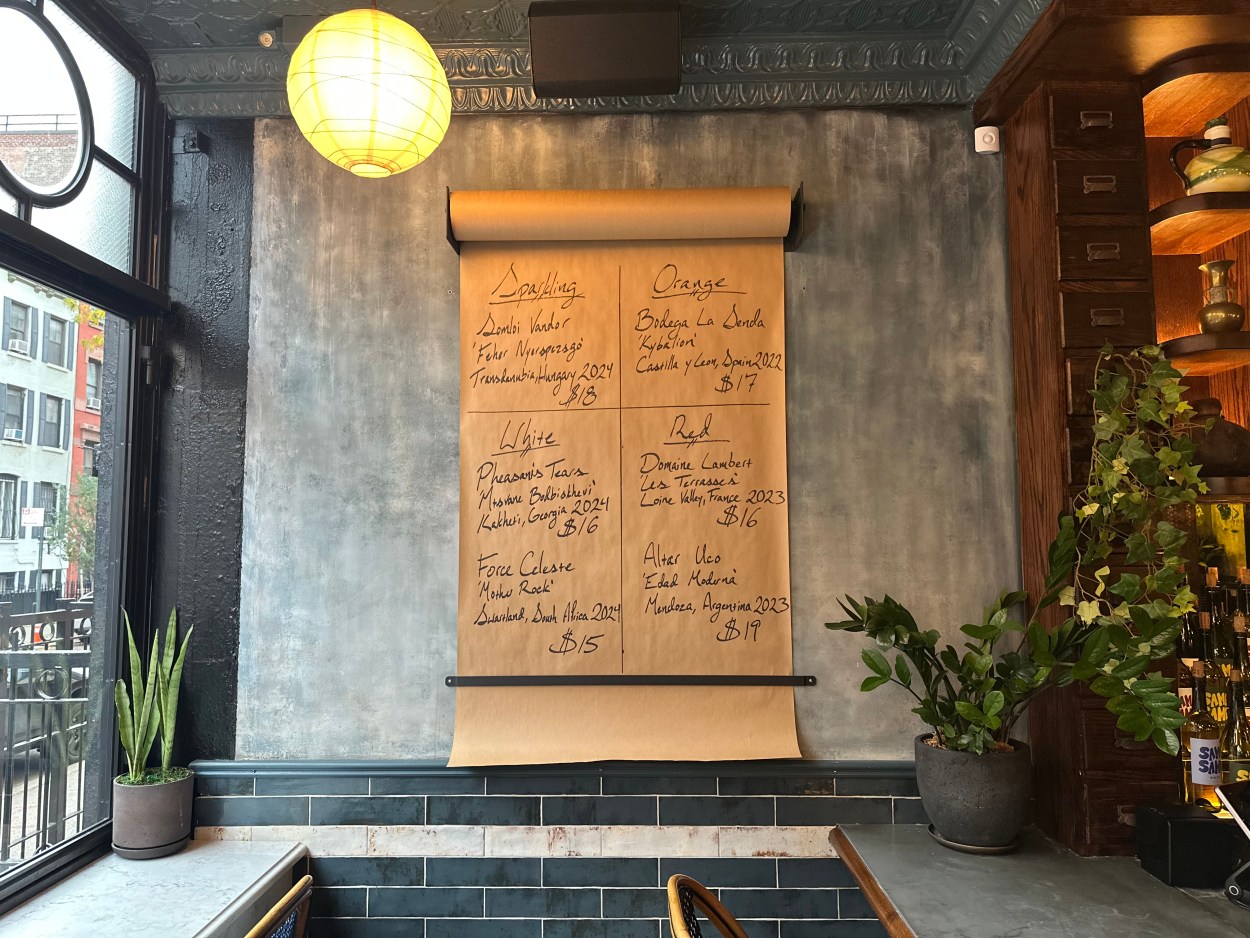 Sparkling
Somloi Vandor
'Feher Nyerspezsgö'
Transdanubia, Hungary 2024
$18
Orange
Bodega La Senda
'Kybalion'
Castilla y Leon, Spain 2022
$17
White
Pheasant's Tears
'Mtsvane Bodbiskhevi'
Kakheti, Georgia 2024
$16
Force Celeste
'Mother Rock'
Swartland, South Africa 2024
$15
Red
Domaine Lambert
'Les Terrasses'
Loire Valley, France 2023
$16
Altar Uco
'Edad Moderna'
Mendoza, Argentina 2023
$19